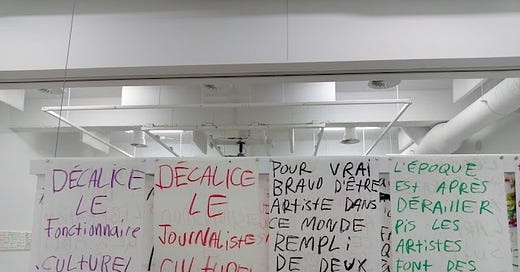 DÉCALICE
LE
Fonctionnaire
CULTUREL
DÉCALICE
LE
JOURNALISTE
CULTUREL
POUR VRAI
BRAVO D'ÊTRE
ARTISTE DANS
CE MONDE
REMPLI
DE DEUX
L'ÉPOQUE
EST APRÈS
DÉRAILLER
PIS LES
ARTISTES
FONT DES